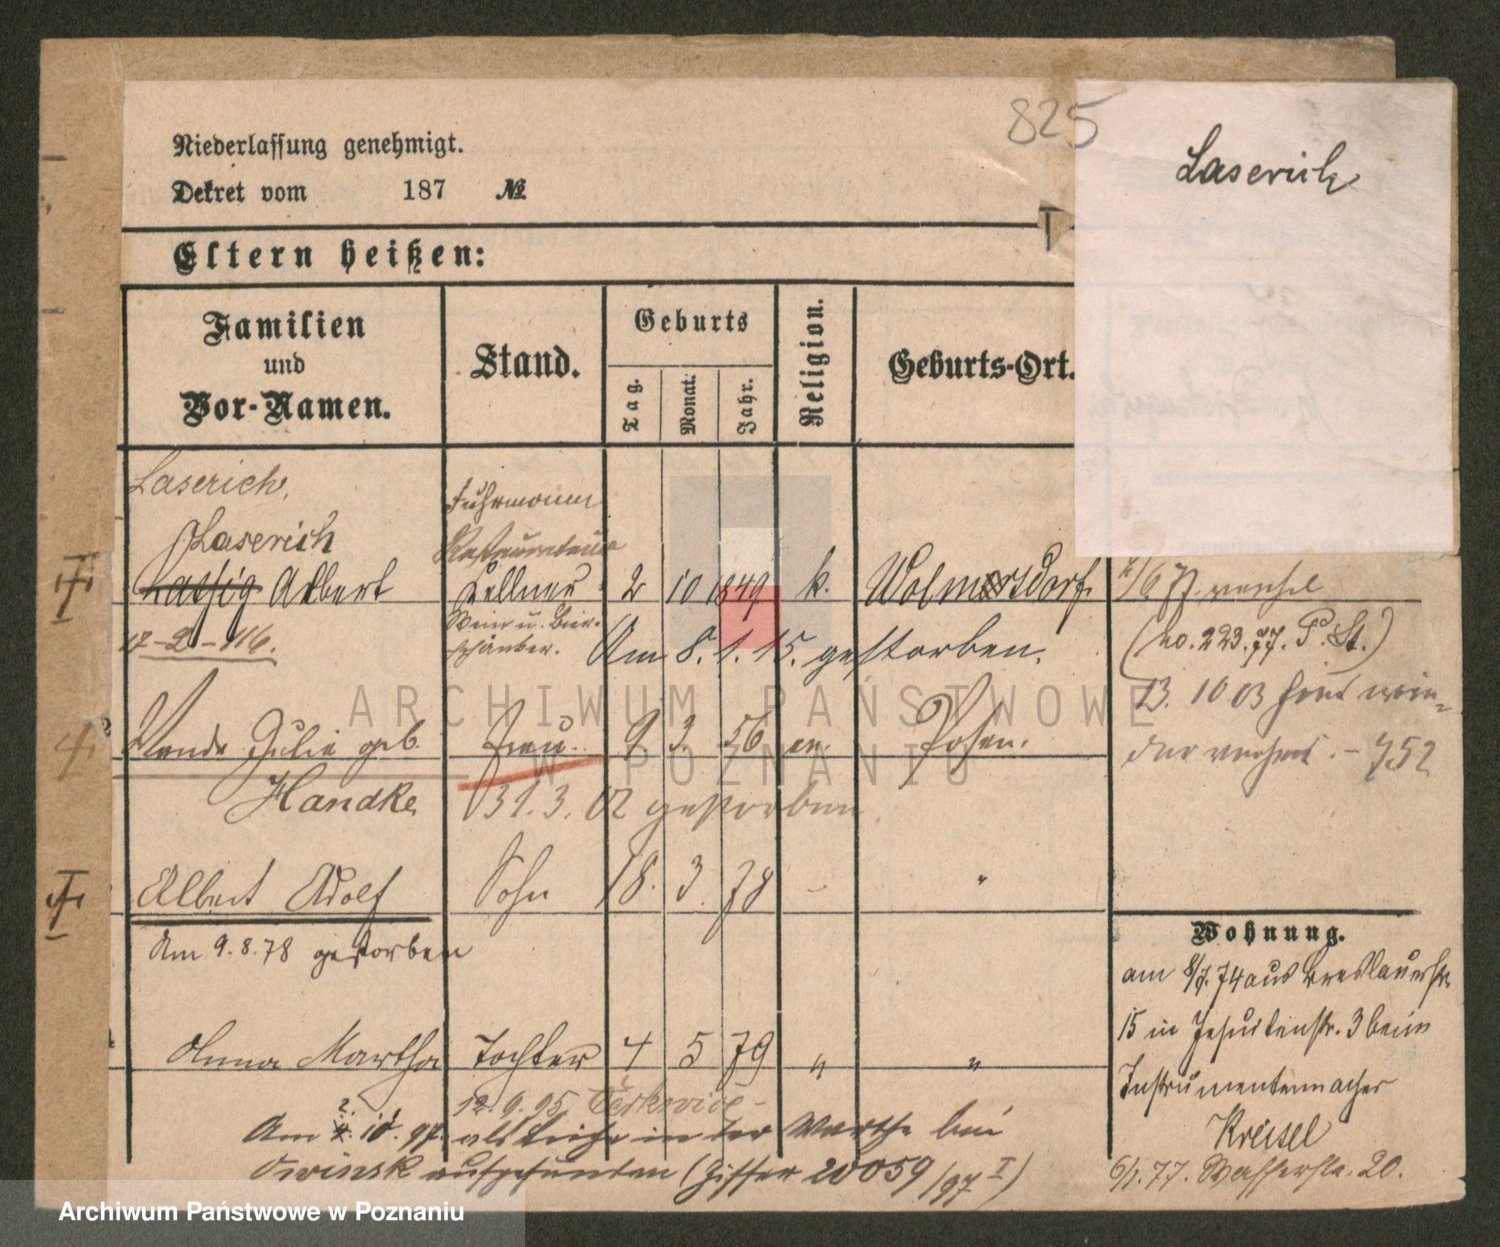 825
Laserich
Niederlassung genehmigt.
Dekret vom 187 №
Eltern heißen:
Familien und Vor-Namen.
Stand.
Geburts
Tag.
Monat.
Jahr.
Religion.
Geburts-Ort.
Laserich,
Laserich
Albert
Fuhrmann
Restaurateur
Kellner
Wein u. Bier-
schänker.
2 10 1849 k. Wolmersdorf.
17-2-116.
Am 8. 1. 15. gestorben.
Wanda Julie geb. Frau. 9 3. 56 ev. Posen.
Handke
31. 3. 02 gestorben.
Albert Adolf Sohn 18. 3. 78 - "
Am 9. 8. 78 gestorben
Anna Martha Tochter 4 5 79 " "
12. 9. 95
Am 2. 10. 97. als Leiche in der Warthe bei
Owinsk aufgefunden (Ziffer 20059/97 I)
(No. 223. 77. P. St.)
13. 10 03
752
Wohnung.
am 8/7. 74 aus Breslauerstr.
15 in Jesuitenstr. 3 beim
Instrumentenmacher
Kreisel
Wasserstr. 20.
ARCHIWUM PAŃSTWOWE
W POZNANIU
Archiwum Państwowe w Poznaniu